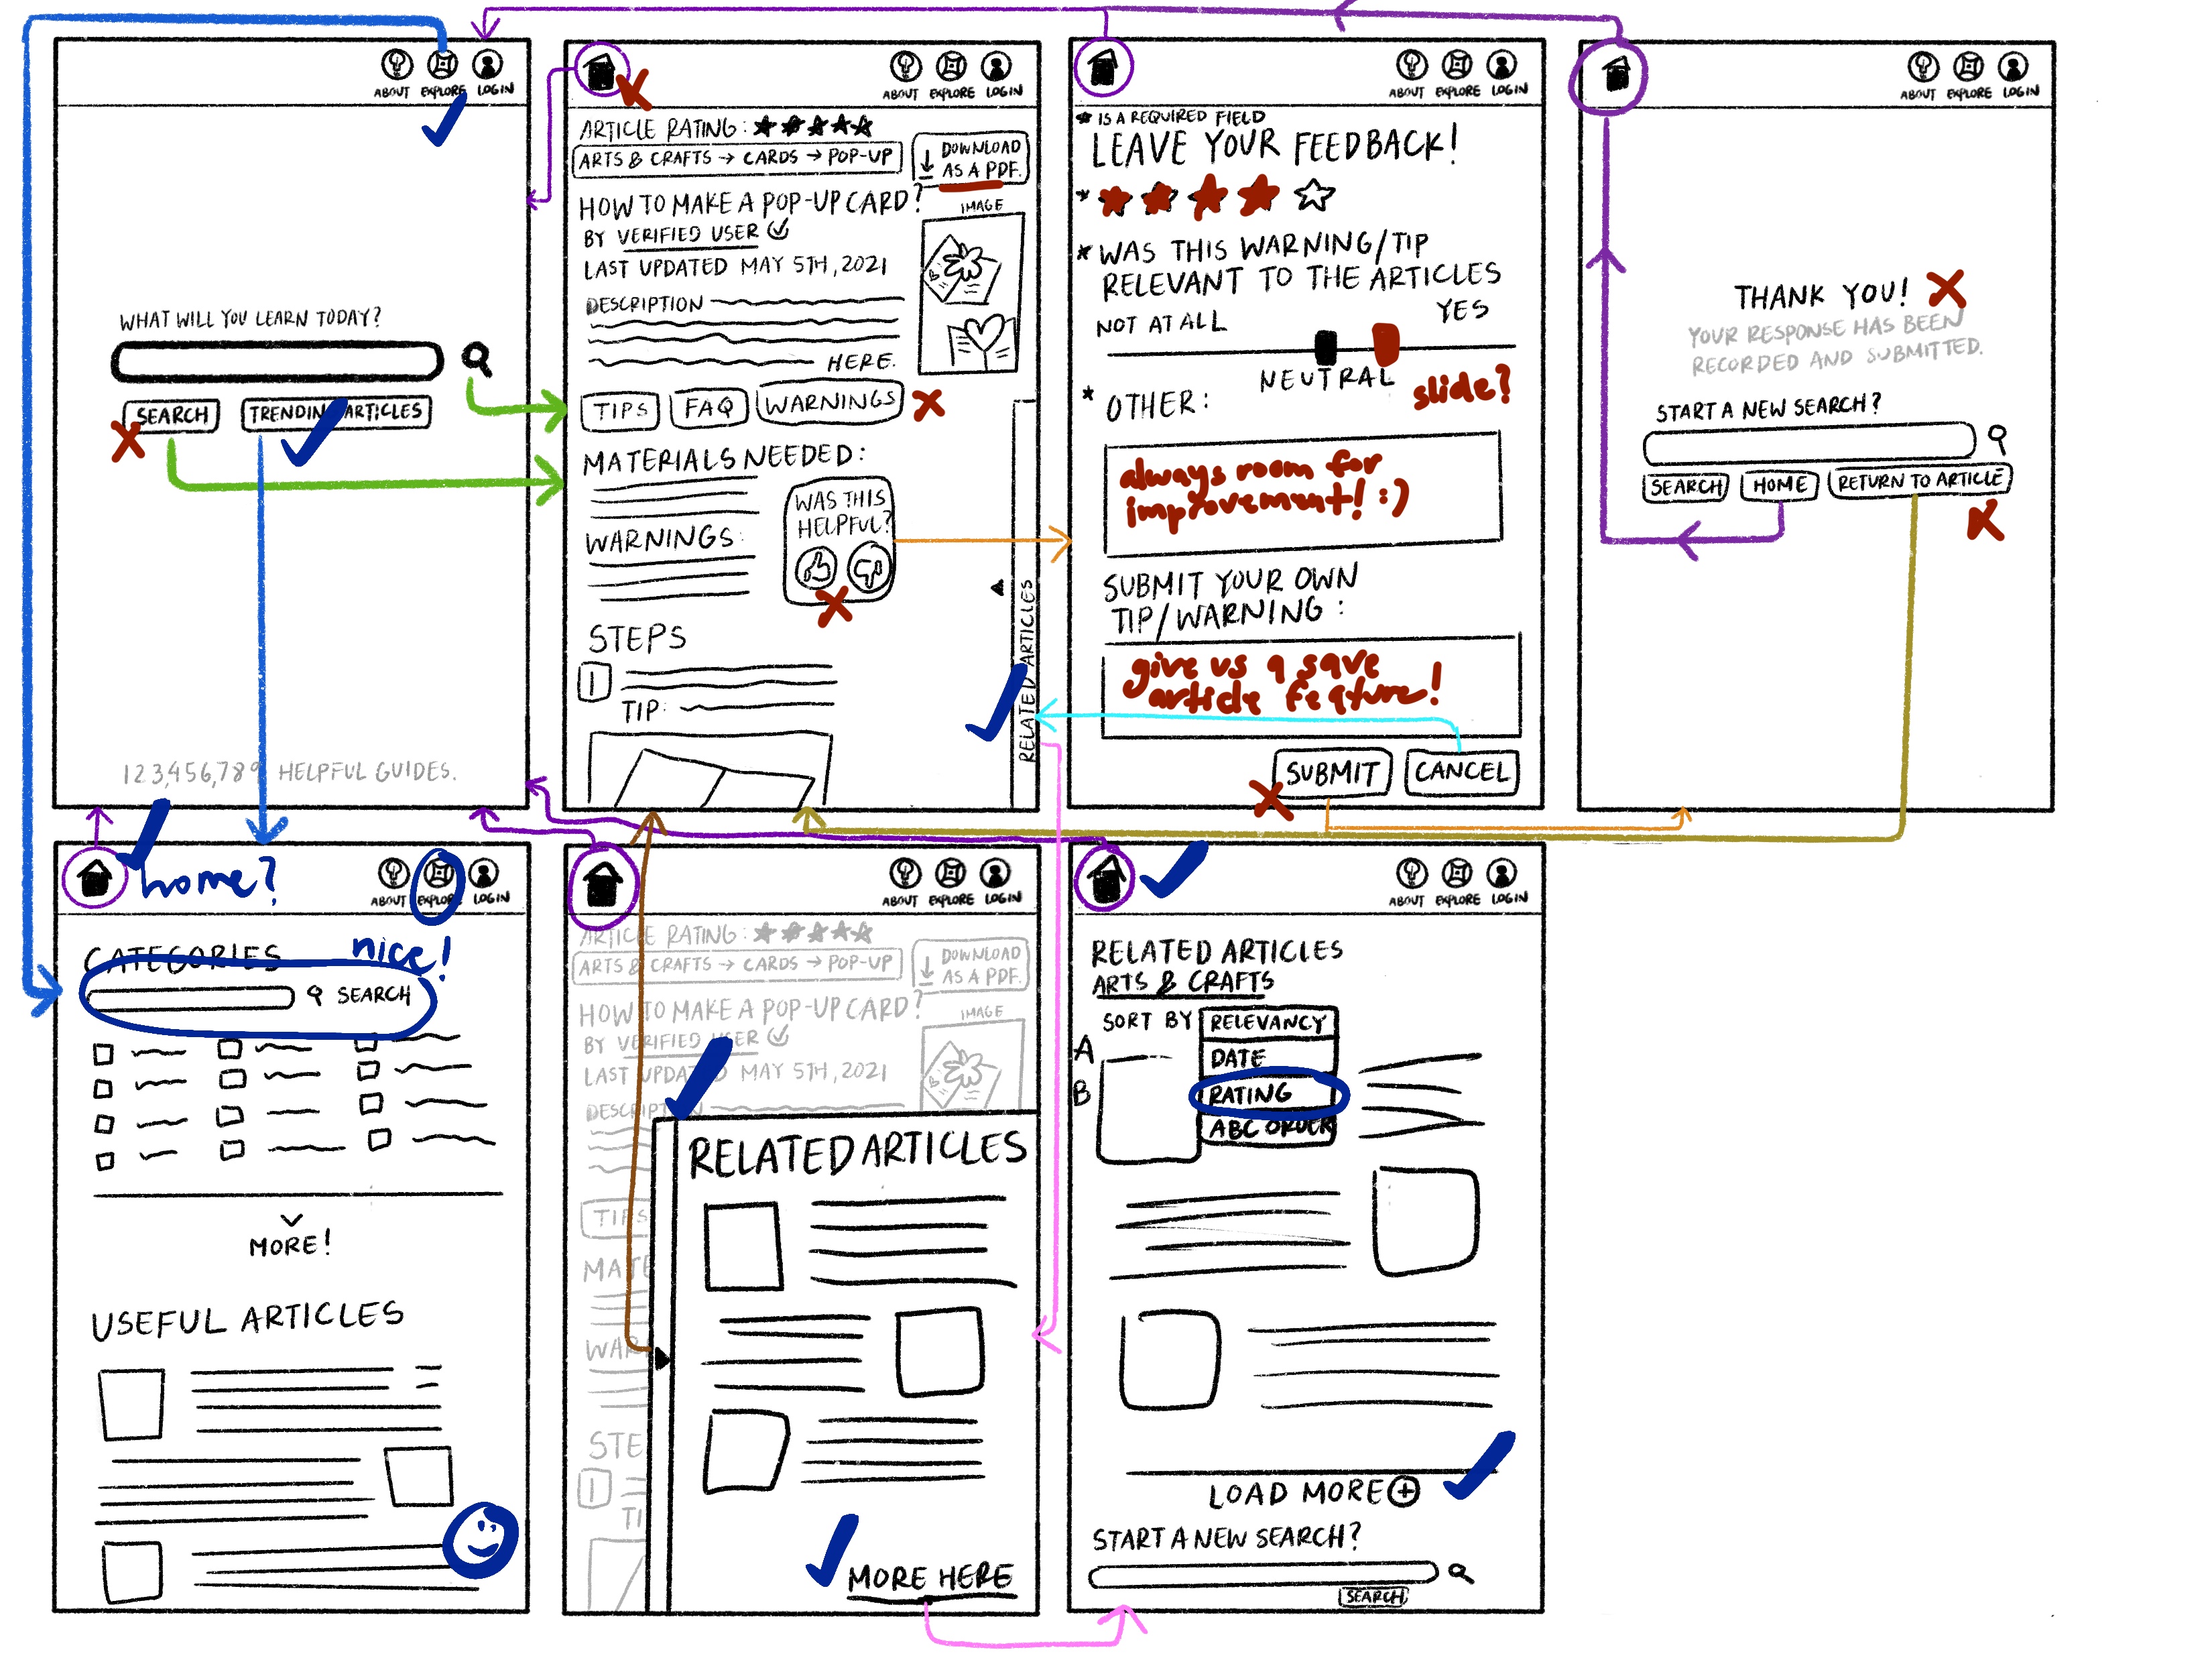 ABOUT EXPLORE LOGIN
WHAT WILL YOU LEARN TODAY?
SEARCH
TRENDING ARTICLES
123,456,789 HELPFUL GUIDES.
ABOUT EXPLORE LOGIN
ARTICLE RATING:
ARTS & CRAFTS → CARDS → POP-UP
DOWNLOAD
AS A PDF.
HOW TO MAKE A POP-UP CARD?
BY VERIFIED USER
LAST UPDATED MAY 5TH, 2021
IMAGE
DESCRIPTION
HERE.
TIPS
FAQ
WARNINGS
MATERIALS NEEDED:
WAS THIS
HELPFUL?
WARNINGS:
STEPS
1
TIP:
RELATED ARTICLES
ABOUT EXPLORE LOGIN
* IS A REQUIRED FIELD
LEAVE YOUR FEEDBACK!
*
* WAS THIS WARNING/TIP
RELEVANT TO THE ARTICLES
NOT AT ALL
YES
NEUTRAL
slide?
* OTHER:
always room for
improvement! :)
SUBMIT YOUR OWN
TIP/WARNING:
give us a save
article feature!
SUBMIT
CANCEL
ABOUT EXPLORE LOGIN
THANK YOU!
YOUR RESPONSE HAS BEEN
RECORDED AND SUBMITTED.
START A NEW SEARCH?
SEARCH
HOME
RETURN TO ARTICLE
home?
ABOUT EXPLORE LOGIN
CATEGORIES
nice!
SEARCH
MORE!
USEFUL ARTICLES
ABOUT EXPLORE LOGIN
ARTICLE RATING:
ARTS & CRAFTS → CARDS → POP-UP
DOWNLOAD
AS A PDF.
HOW TO MAKE A POP-UP CARD?
BY VERIFIED USER
LAST UPDATED MAY 5TH, 2021
IMAGE
DESCRIPTION
RELATED ARTICLES
TIPS
MATE
WAR
STE
1
TI
MORE HERE
ABOUT EXPLORE LOGIN
RELATED ARTICLES
ARTS & CRAFTS
SORT BY
RELEVANCY
DATE
RATING
ABC ORDER
A
B
LOAD MORE +
START A NEW SEARCH?
SEARCH